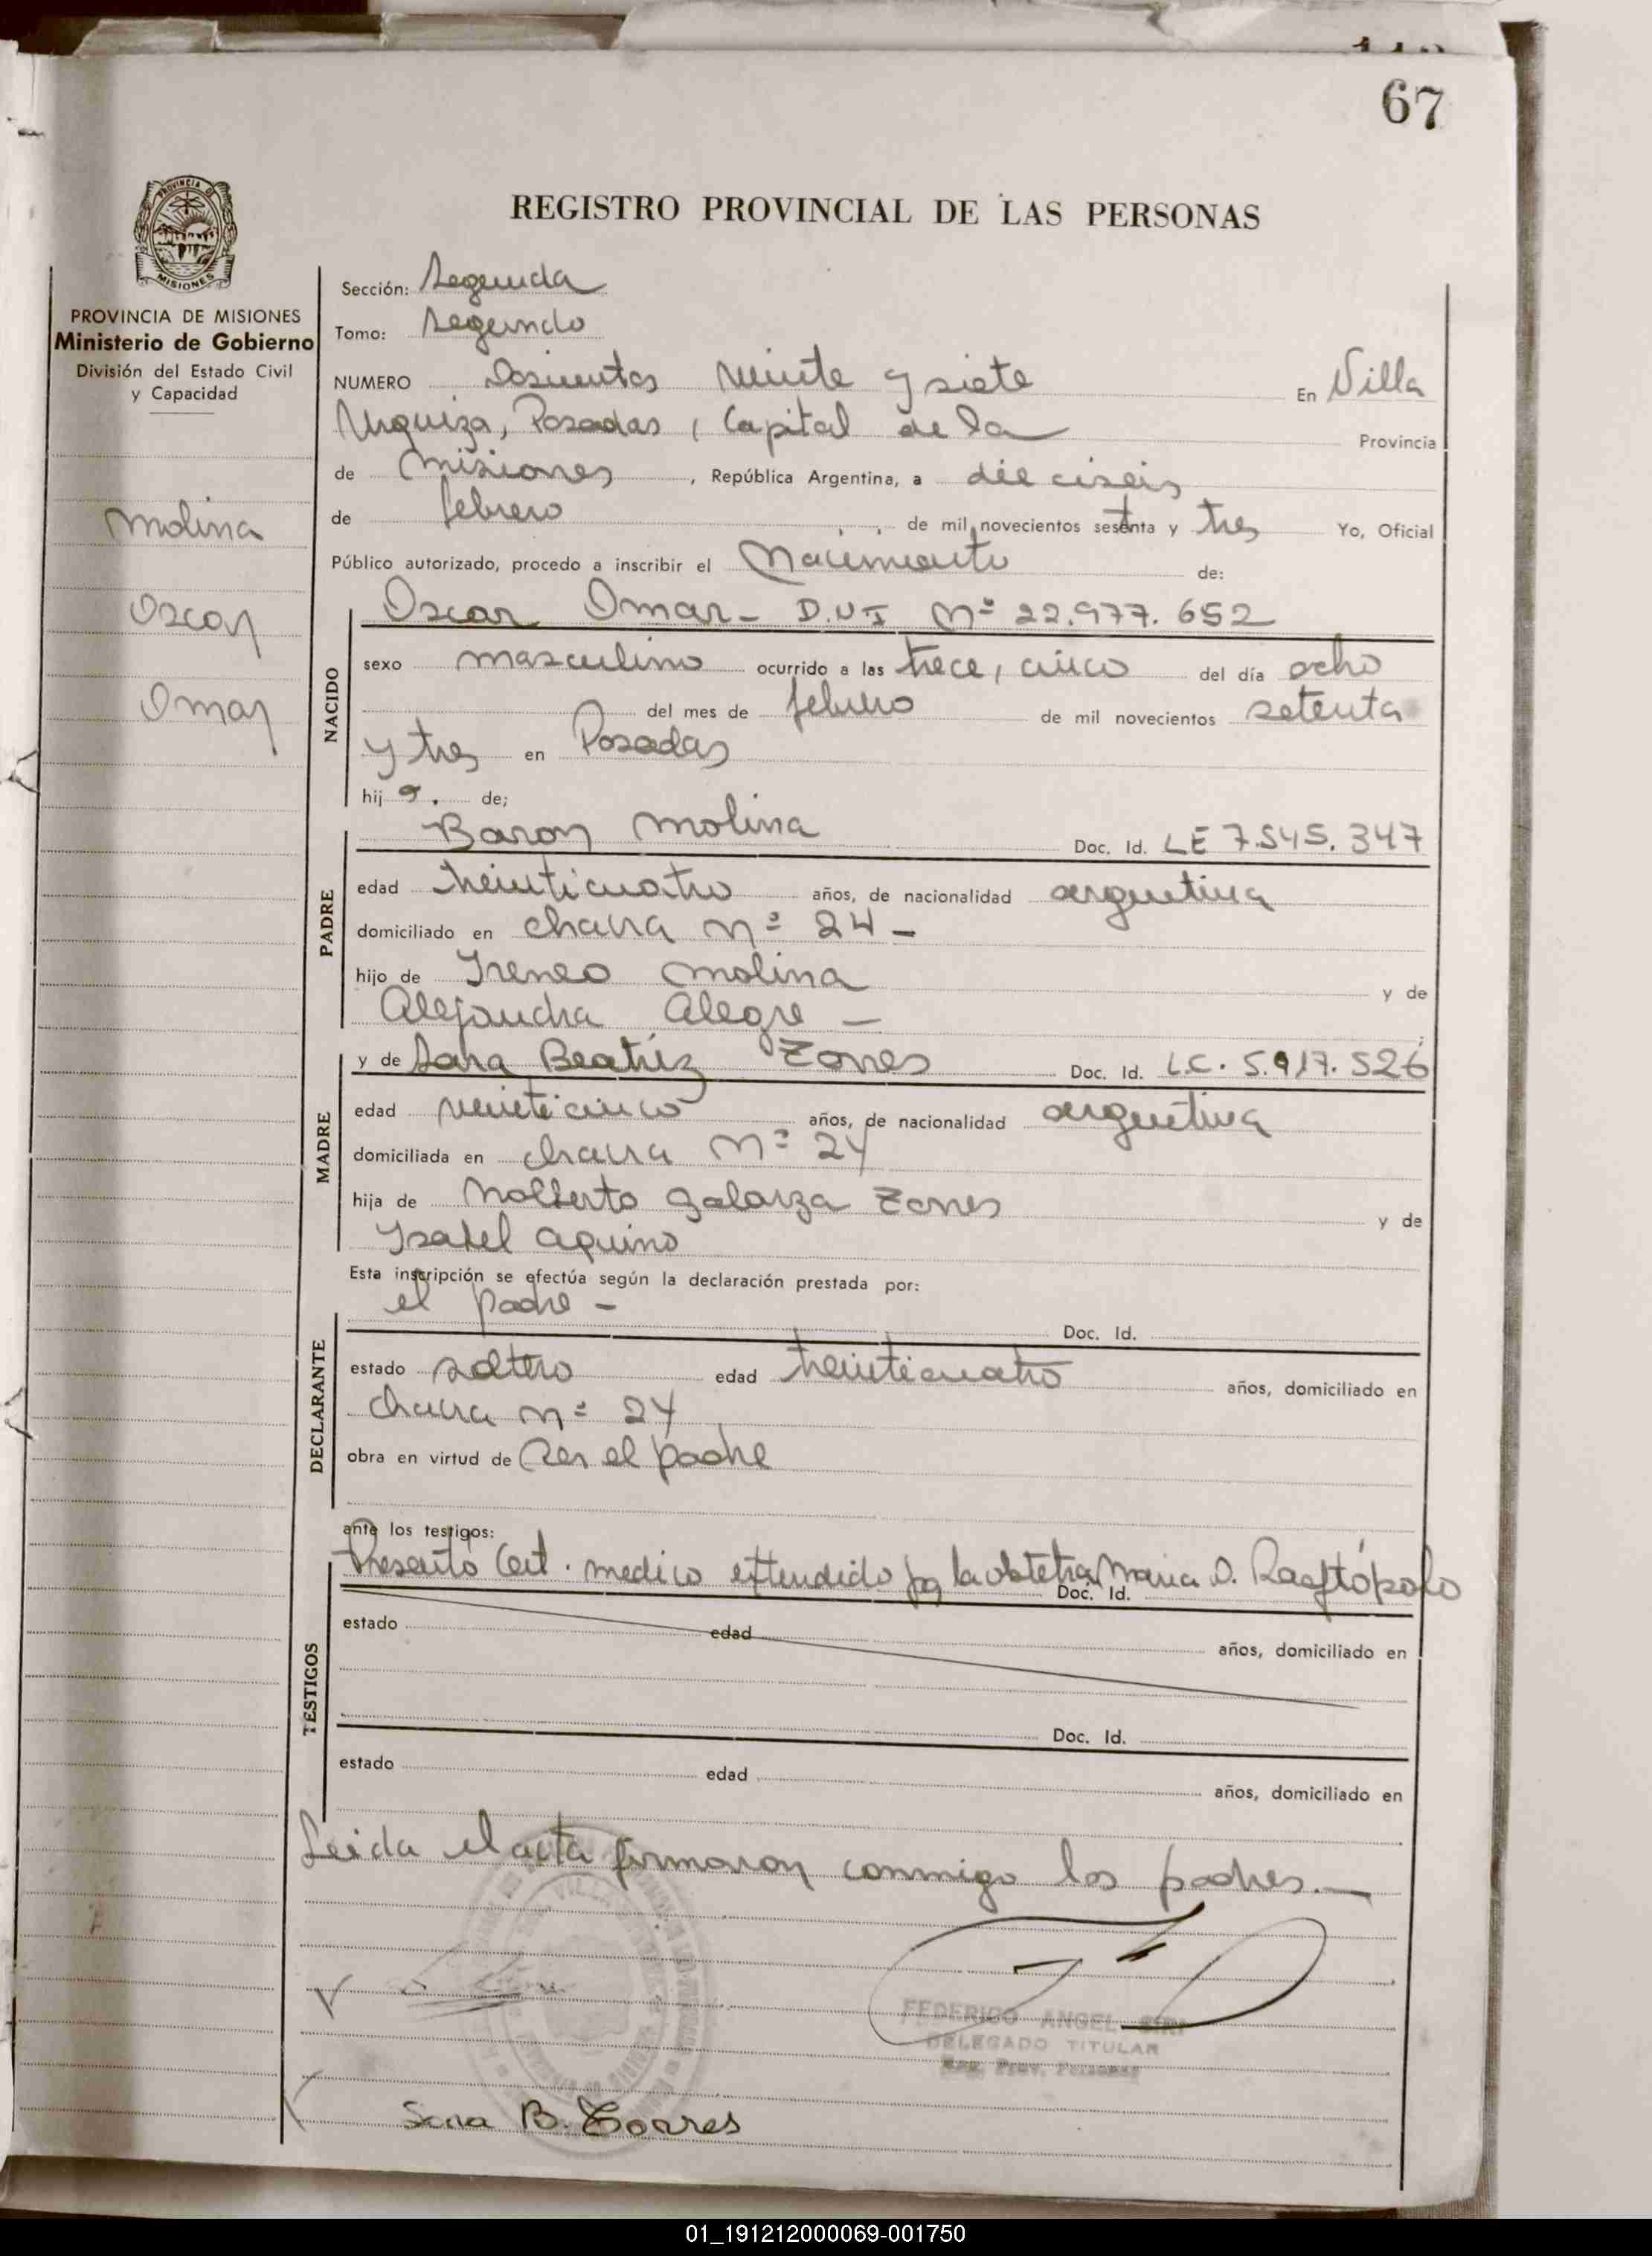 67
REGISTRO PROVINCIAL DE LAS PERSONAS
PROVINCIA DE MISIONES
Ministerio de Gobierno
División del Estado Civil
y Capacidad
Molina
Oscar
Omar
Sección: Segunda
Tomo: Segundo
NUMERO Dosientos veinte y siete En Villa
Urquiza, Posadas, Capital de la Provincia
de Misiones, República Argentina, a dieciseis
de febrero de mil novecientos setenta y tres Yo, Oficial
Público autorizado, procedo a inscribir el Nacimiento de:
Oscar Omar - D.U.I Nº 22.977.652
NACIDO
sexo masculino ocurrido a las trece, cinco del día ocho
del mes de febrero de mil novecientos setenta
y tres en Posadas
hij o. de;
PADRE
Baron Molina Doc. Id. LE 7.545.347
edad treinticuatro años, de nacionalidad argentina
domiciliado en chacra nº 24 -
hijo de Ireneo Molina y de
Alejandra Alegre -
MADRE
y de Sara Beatriz Zorres Doc. Id. L.C. 5.917.526
edad veinticinco años, de nacionalidad argentina
domiciliada en chacra Nº 24
hija de Nolberto Galarza Zorres y de
Ysabel Aquino
Esta inscripción se efectúa según la declaración prestada por:
el padre -
Doc. Id.
DECLARANTE
estado soltero edad treinticuatro años, domiciliado en
chacra nº 24
obra en virtud de ser el padre
ante los testigos:
Presentó Cert. medico extendido por la obstetra Maria D.
Doc. Id.
TESTIGOS
estado edad años, domiciliado en
Doc. Id.
estado edad años, domiciliado en
Leida el acta firmaron conmigo los padres.-
FEDERICO ANGEL
DELEGADO TITULAR
Reg. Prov. Personas
Sara B. Torres
01_191212000069-001750